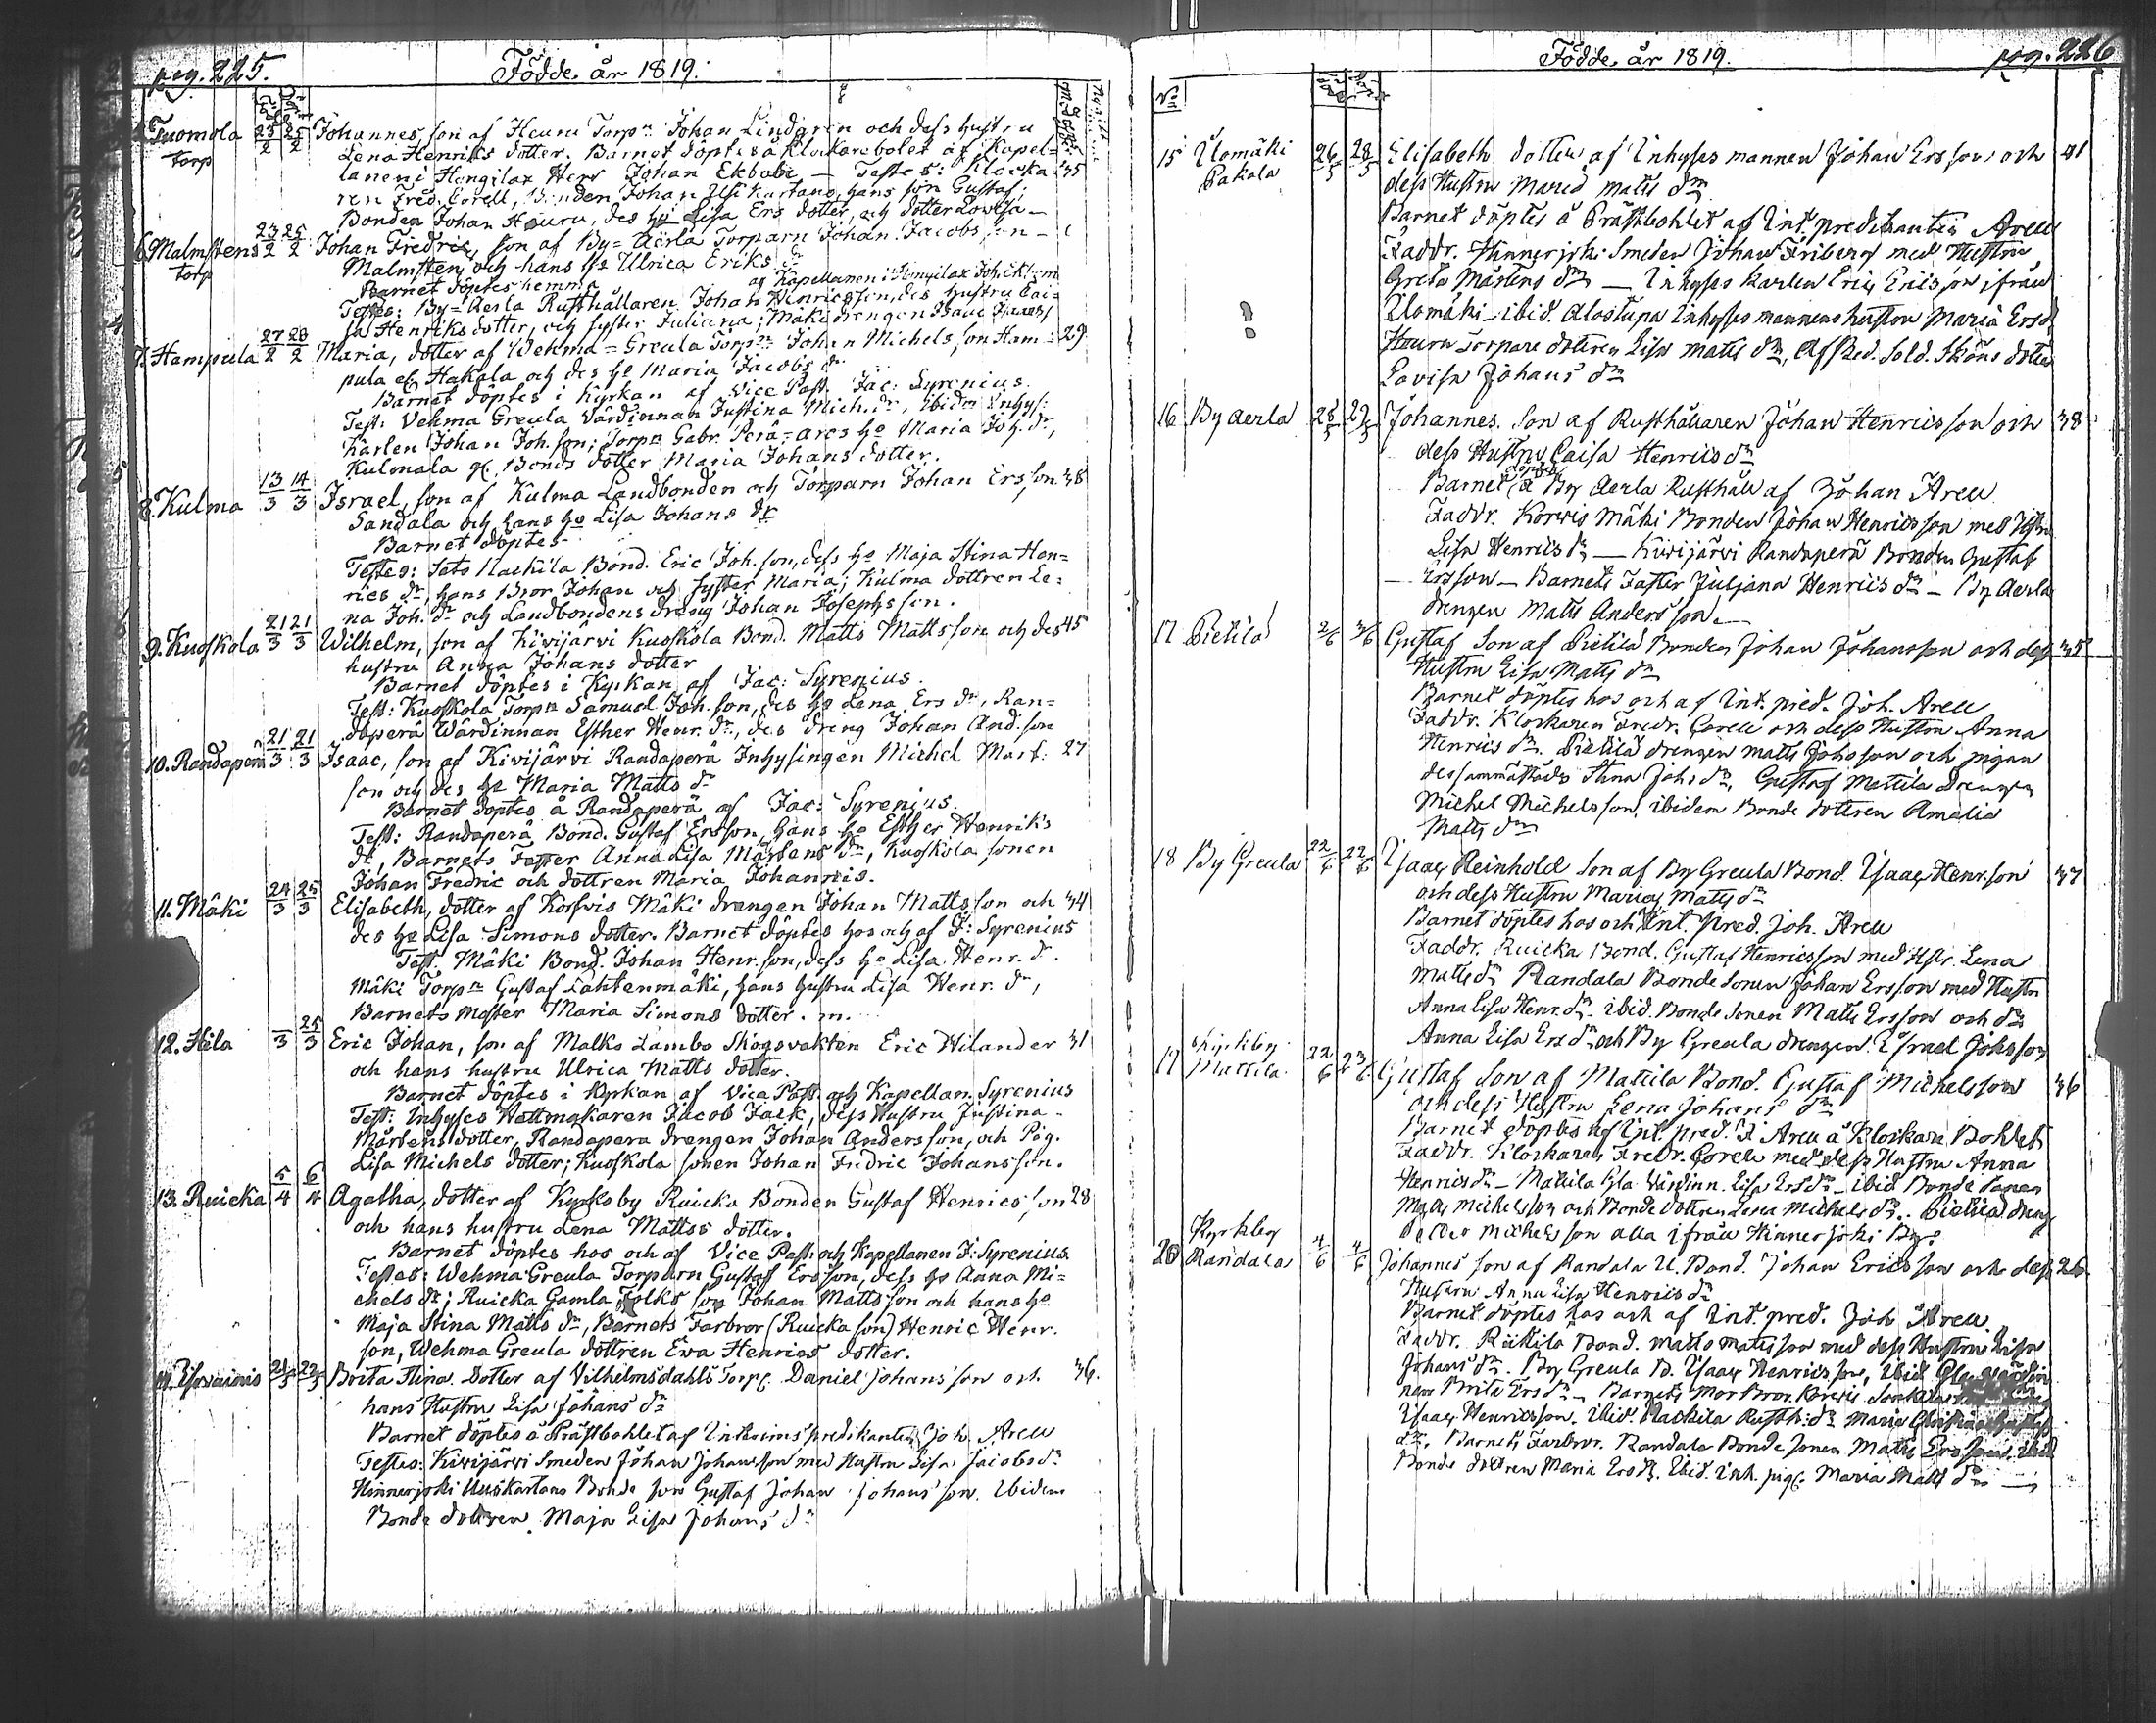 pag. 225.
Födde år 1819.
Tuomola 23/2 25/2 Johannes, son af Heuru Torpn Johan Lindgren och dess hustru
torp Lena Henriks dotter. Barnet döptes å Klockarebolet af Kapel=
lanen i Hongilax Herr Johan Ekbom — Testes: Klocka= 35
ren Fred. Corell, Bonden Johan Uskartano, hans son Gustaf;
Bonden Johan Heuru, des ho Lisa Ers dotter, och dotter Lowisa —
6 Malmstens 23/2 25/2 Johan Fredric, son af By=Aerla Torparn Johan Jacobs son —
torp Malmsten och hans ho Ulrica Eriks dr
Barnet döptes hemma af Kapellanen i
Testes: By=Aerla Rusthållaren Johan Henricsson, des hustru Cai=
sa Henriks dotter, och syster Juliana; Mäki drengen Isaac
7. Hampula 27/2 28/2 Maria, dotter af Wehma=Greula Torpn Johan Michels son Ham= 29
pula el Hakala och des ho Maria Jacobs dr
Barnet döptes i Kyrkan af Vice Past. Jac: Syrenius.
Test: Vehma Greula Värdinnan Justina Mich. dr, ibidm Inhys:
Karlen Johan Joh. son; Torpn Gabr. Perä=ares ho Maria Joh. dr,
Kulmala gl Bonds dotter Maria Johans dotter.
8. Kulma 13/3 14/3 Israel, son af Kulma Landbonden och Torparn Johan Ers son 38
Sandala och hans ho Lisa Johans dr
Barnet döptes
Testes: Sato Uackila Bond. Eric Joh. son, dess ho Maja Stina Hen=
rics dr, hans Bror Johan och syster Maria; Kulma dottren Le=
na Joh. dr och Landbondens dreng Johan Josephs son.
9. Kuoskola 21/3 21/3 Wilhelm, son af Kivijärvi Kuoskola Bond. Matts Matts son och des 45
hustru Anna Johans dotter
Barnet döptes i Kyrkan af Jac: Syrenius.
Test: Kuoskola Torpn Samuel Joh. son, des ho Lena Ers dr, Ran=
daperä Wärdinnan Esther Henr. dr, des dreng Johan And. son
10. Randaperä 21/3 21/3 Isaac, son af Kivijärvi Randaperä Inhysingen Michel Mårt: 27
son och des ho Maria Matts dr
Barnet döptes å Randaperä af Jac: Syrenius.
Test: Randaperä Bond. Gustaf Ersson, hans ho Esther Henriks
dr, Barnets Faster Anna Lisa Mårtens dr, Kuoskola sonen
Johan Fredric och dottren Maria Johannis.
11. Mäki 24/3 25/3 Elisabeth, dotter af Korfwis Mäki drengen Johan Matts son och 34
des ho Lisa Simons dotter. Barnet döptes hos och af J: Syrenius
Test. Mäki Bond. Johan Henr. son, dess ho Lisa Henr. dr.
Mäki Torpn Gustaf Lahtenmäki, hans hustru Lisa Henr. dr,
Barnets Moster Maria Simons dotter. m.
12. Hila /3 25/3 Eric Johan, son af Malko Lambo Skogsvakten Eric Hilander 31
och hans hustru Ulrica Matts dotter.
Barnet döptes i Kyrkan af Vice Past. och Kapellan Syrenius
Test: Inhyses Wattmakaren Jacob Falk, dess Hustru Justina
Mårtens dotter, Randapera drengen Johan Andersson, och Pig.
Lisa Michels dotter; Kuoskola sonen Johan Fredric Johansson.
13. Ruicka 5/4 6/4 Agatha, dotter af Kyrkoby Ruicka Bonden Gustaf Henrics son 28
och hans hustru Lena Mattss dotter.
Barnet döptes hos och af Vice Past. och Kapellanen J: Syrenius
Testes: Wehma Greula Torparn Gustaf Ersson, dess ho Anna Mi=
chels dr; Ruicka Gamla Folks son Johan Matts son och hans ho
Maja Stina Matts dr, Barnets Farbror (Ruicka son) Henric Henr.
son, Wehma Greula dottren Ewa Henrics dotter.
14. 21/5 22/5 Brita Stina. Dotter af Vilhelmsdahls Torp. Daniel Johans son och 36.
hans Hustru Lisa Johans dr
Barnet döptes å Prästbohlet af Interims predikanten Joh. Arell
Testes. Kivijärvi Smeden Johan Johansson med Hustru Lisa Jacobs dr
Hinnerjoki Uuskartano Bonde son Gustaf Johan Johans son. Ibidem
Bonde dottren Maja Lisa Johans dr
Födde år 1819.
pag. 226
No
15 Ylomäki 26/5 28/5 Elisabeth dotter af Inhyses mannen Johan Ersson och 41
Pakala dess Hustru Maria Matts dr
Barnet döptes å Prästbohlet af Int. predikanten Arell
Faddr. Hinnerjoki Smeden Johan Friberg med Hustru
Greta Mårtens dr — Inhyses karlen Eric Ericsson ifrån
Ylomäki — ibid. Alostupa Inhyses mannens hustru Maria Ersd.
Heuru Torpare dottren Lisa Matts dr, Afsked. Sold. Sköns dotter
Lovisa Johans dr
16 By Aerla 28/5 29/5 Johannes. Son af Rusthållaren Johan Henricsson och 38
dess Hustru Caisa Henrics dr
Barnet döptes å By Aerla Rusthåll af Johan Arell
Faddr. Korvis Mäki Bonden Johan Henricsson med Hstru
Lisa Henrics dr — Kivijärvi Randaperä Bonden Gustaf
Ersson — Barnets Faster Juljana Henrics dr — By Aerla
drengen Matts Andersson.
17 Pietilä 2/6 3/6 Gustaf Son af Pietilä Bonden Johan Johansson och dess 35
Hustru Lisa Matts dr
Barnet döptes hos och af Int. pred. Joh. Arell
Faddr. Klockaren Fredr. Corell och dess Hustru Anna
Henrics dr. Pietilä drengen Matts Johsson och pigan
dessammastädes Stina Johs dr, Gustaf Mattila drengen
Michel Michelsson, ibidem Bonde dottren Amalia
Matts dr
18 By Greula 22/6 22/6 Ysaac Reinhold Son af By Greula Bond. Ysaac Henr.son 37
och dess Hustru Maria Matts dr
Barnet döptes hos och Int. pred. Joh. Arell
Faddr. Ruicka Bond. Gustaf Henricsson med Hstr. Lena
Matts dr Randala Bonde sonen Johan Ersson med Hustru
Anna Lisa Henr. dr. ibid. Bonde Sonen Matts Ersson och dr
Anna Lisa Ers dr och By Greula drengen. Israel Johsson
Kyrkby
19 Mattila. 22/6 23/6. Gustaf Son af Mattila Bond. Gustaf Michelsson 36
och dess Hustru Lena Johans dr
Barnet döptes af Int. pred. J Arell å Klockare Bohlet
Faddr. Klockaren Fredr. Corell med dess Hustru Anna
Henrics dr — Mattila Gla Wärdinn. Lisa Ers dr — ibid Bonde Sonen
Matts Michelsson och Bonde dottren Lena Michels dr. Pietilä dreng
Petter Michelsson alla ifrån Hinnerjoki By.
Kyrkby
20 Randala 4/6 4/6 Johannes son af Randala U. Bond. Johan Ericsson och dess 26.
Hustru Anna Lisa Henrics dr
Barnet döptes hos och af Int. pred. Joh Arell
Faddr. Riihilä Bond. Matts Mattsson med dess Hustru Lisa
Johans dr. By Greula B. Ysaac Henricsson, Ibid Gla Wärdin
nan Brita Ers dr — Barnets Mor Bror Korvis
Ysaac Henricsson. Ibid. Uackila Rusth: dr Maria
dr. Barnets Farbror. Randala Bonde sonen Matts Ersson. ibid
Bonde dottren Maria Ers dr. Ibid. Inh. pig. Maria Matts dr —